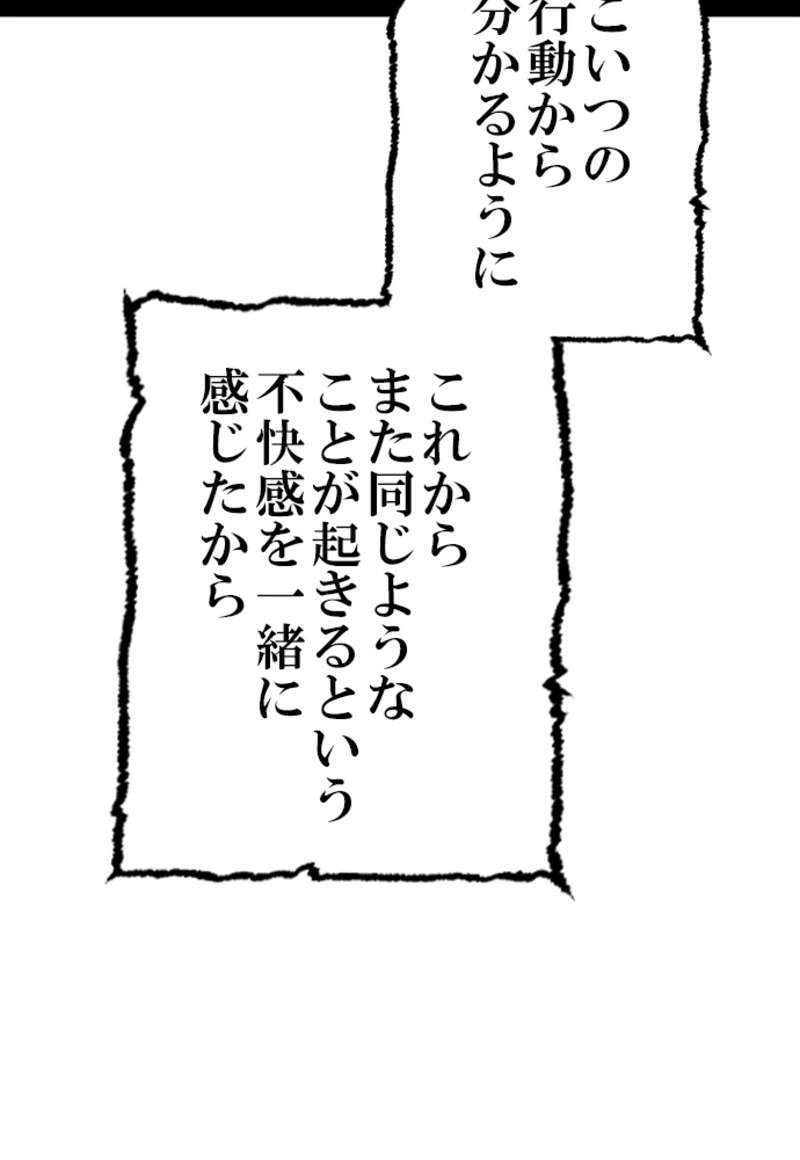 こいつの
行動から
分かるように
これから
また同じような
ことが起きるという
不快感を一緒に
感じたから